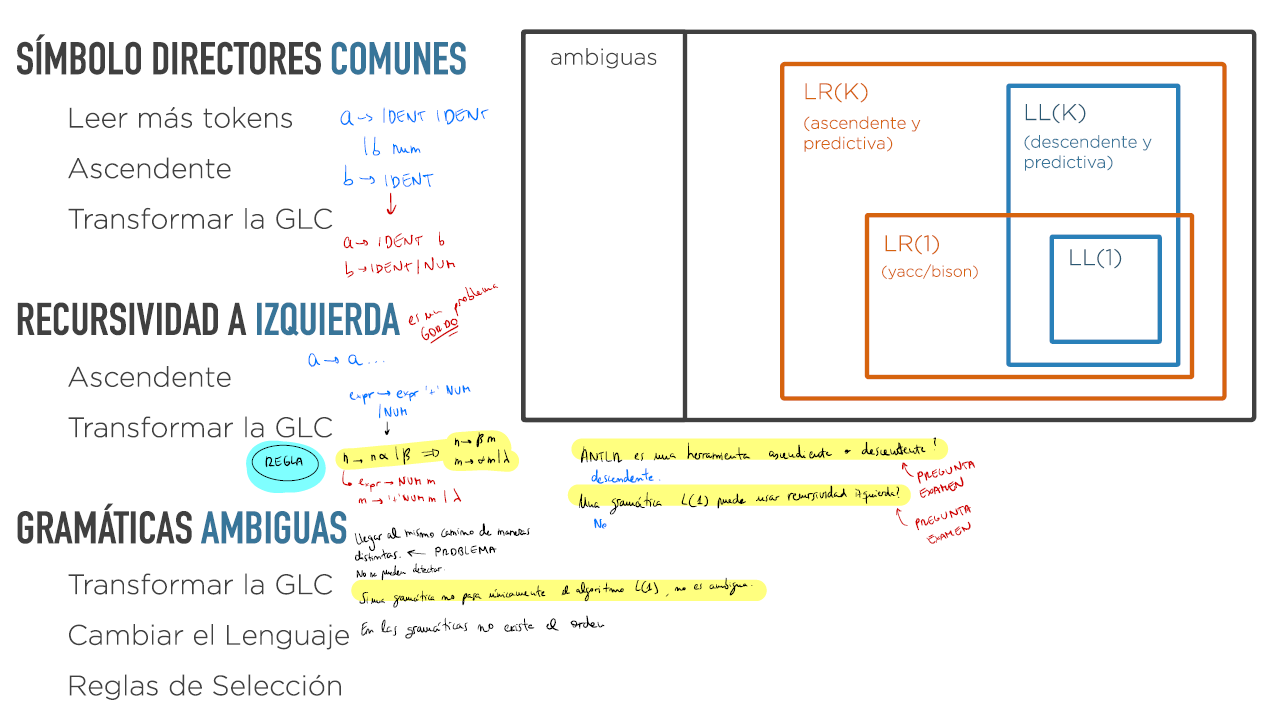 SÍMBOLO DIRECTORES COMUNES
Leer más tokens
Ascendente
Transformar la GLC
a → IDENT IDENT
| b num
b → IDENT
↓
a → IDENT b
b → IDENT / NUM
RECURSIVIDAD A IZQUIERDA
es un problema
GORDO
a → a ...
Ascendente
Transformar la GLC
expr → expr '+' NUM
| NUM
↓
REGLA
n → n α | β ⇒ n → β m
m → α m | λ
expr → NUM m
m → '+' NUM m | λ
GRAMÁTICAS AMBIGUAS
Llegar al mismo camino de maneras
distintas. ← PROBLEMA
No se pueden detectar
Transformar la GLC
Si una gramática no pasa únicamente el algoritmo L(1), no es ambigua.
Cambiar el Lenguaje
En las gramáticas no existe el orden
Reglas de Selección
ambiguas
LR(K)
(ascendente y
predictiva)
LL(K)
(descendente y
predictiva)
LR(1)
(yacc/bison)
LL(1)
ANTLR es una herramienta ascendiente o descendente?
descendente.
PREGUNTA
EXAMEN
Una gramática L(1) puede usar recursividad izquierda?
No
PREGUNTA
EXAMEN